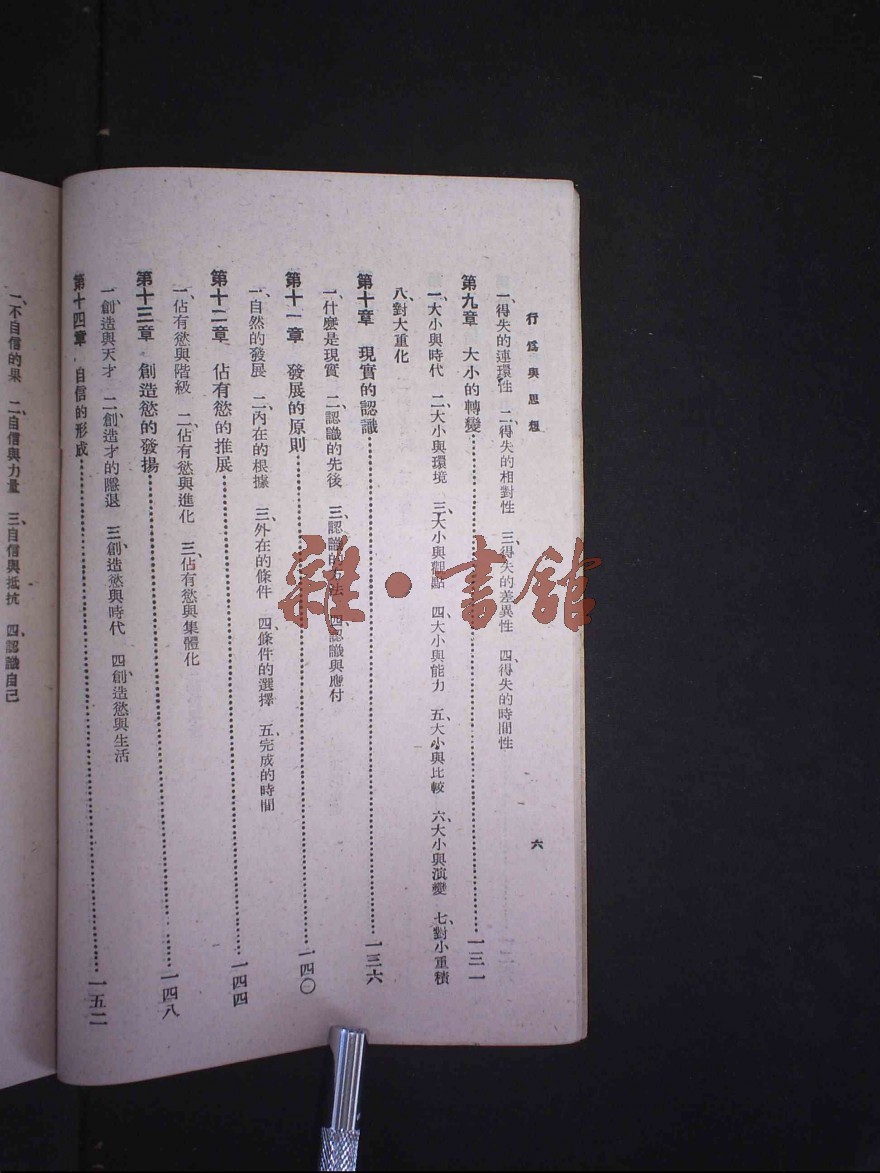 行爲與思想
六
一、得失的連環性　二、得失的相對性　三、得失的差異性　四、得失的時間性
第九章　大小的轉變……一三一
一、大小與時代　二、大小與環境　三、大小與觀點　四、大小與能力　五、大小與比較　六、大小與演變　七、對小重積
八、對大重化
第十章　現實的認識……一三六
一、什麽是現實　二、認識的先後　三、認識的方法　四、認識與應付
第十一章　發展的原則……一四〇
一、自然的發展　二、內在的根據　三、外在的條件　四、條件的選擇　五、完成的時間
第十二章　佔有慾的推展……一四四
一、佔有慾與階級　二、佔有慾與進化　三、佔有慾與集體化
第十三章　創造慾的發揚……一四八
一、創造與天才　二、創造才的隱退　三、創造慾與時代　四、創造慾與生活
第十四章　自信的形成……一五二
一、不自信的果　二、自信與力量　三、自信與抵抗　四、認識自己
雜·書館